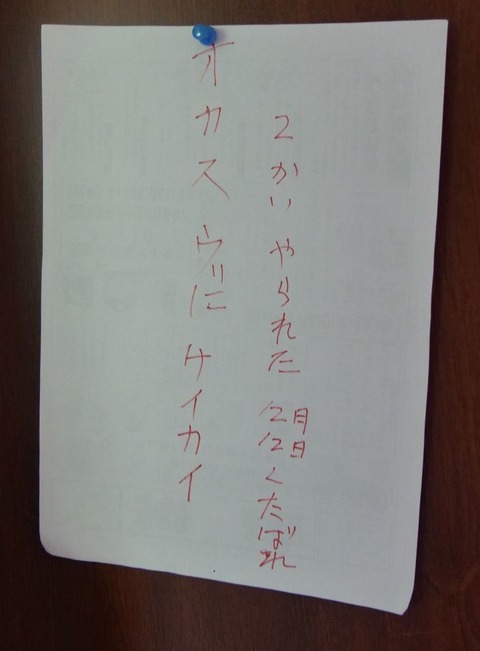 2かいやられた 12月12日くたばれ
オカスヴにケイカイ